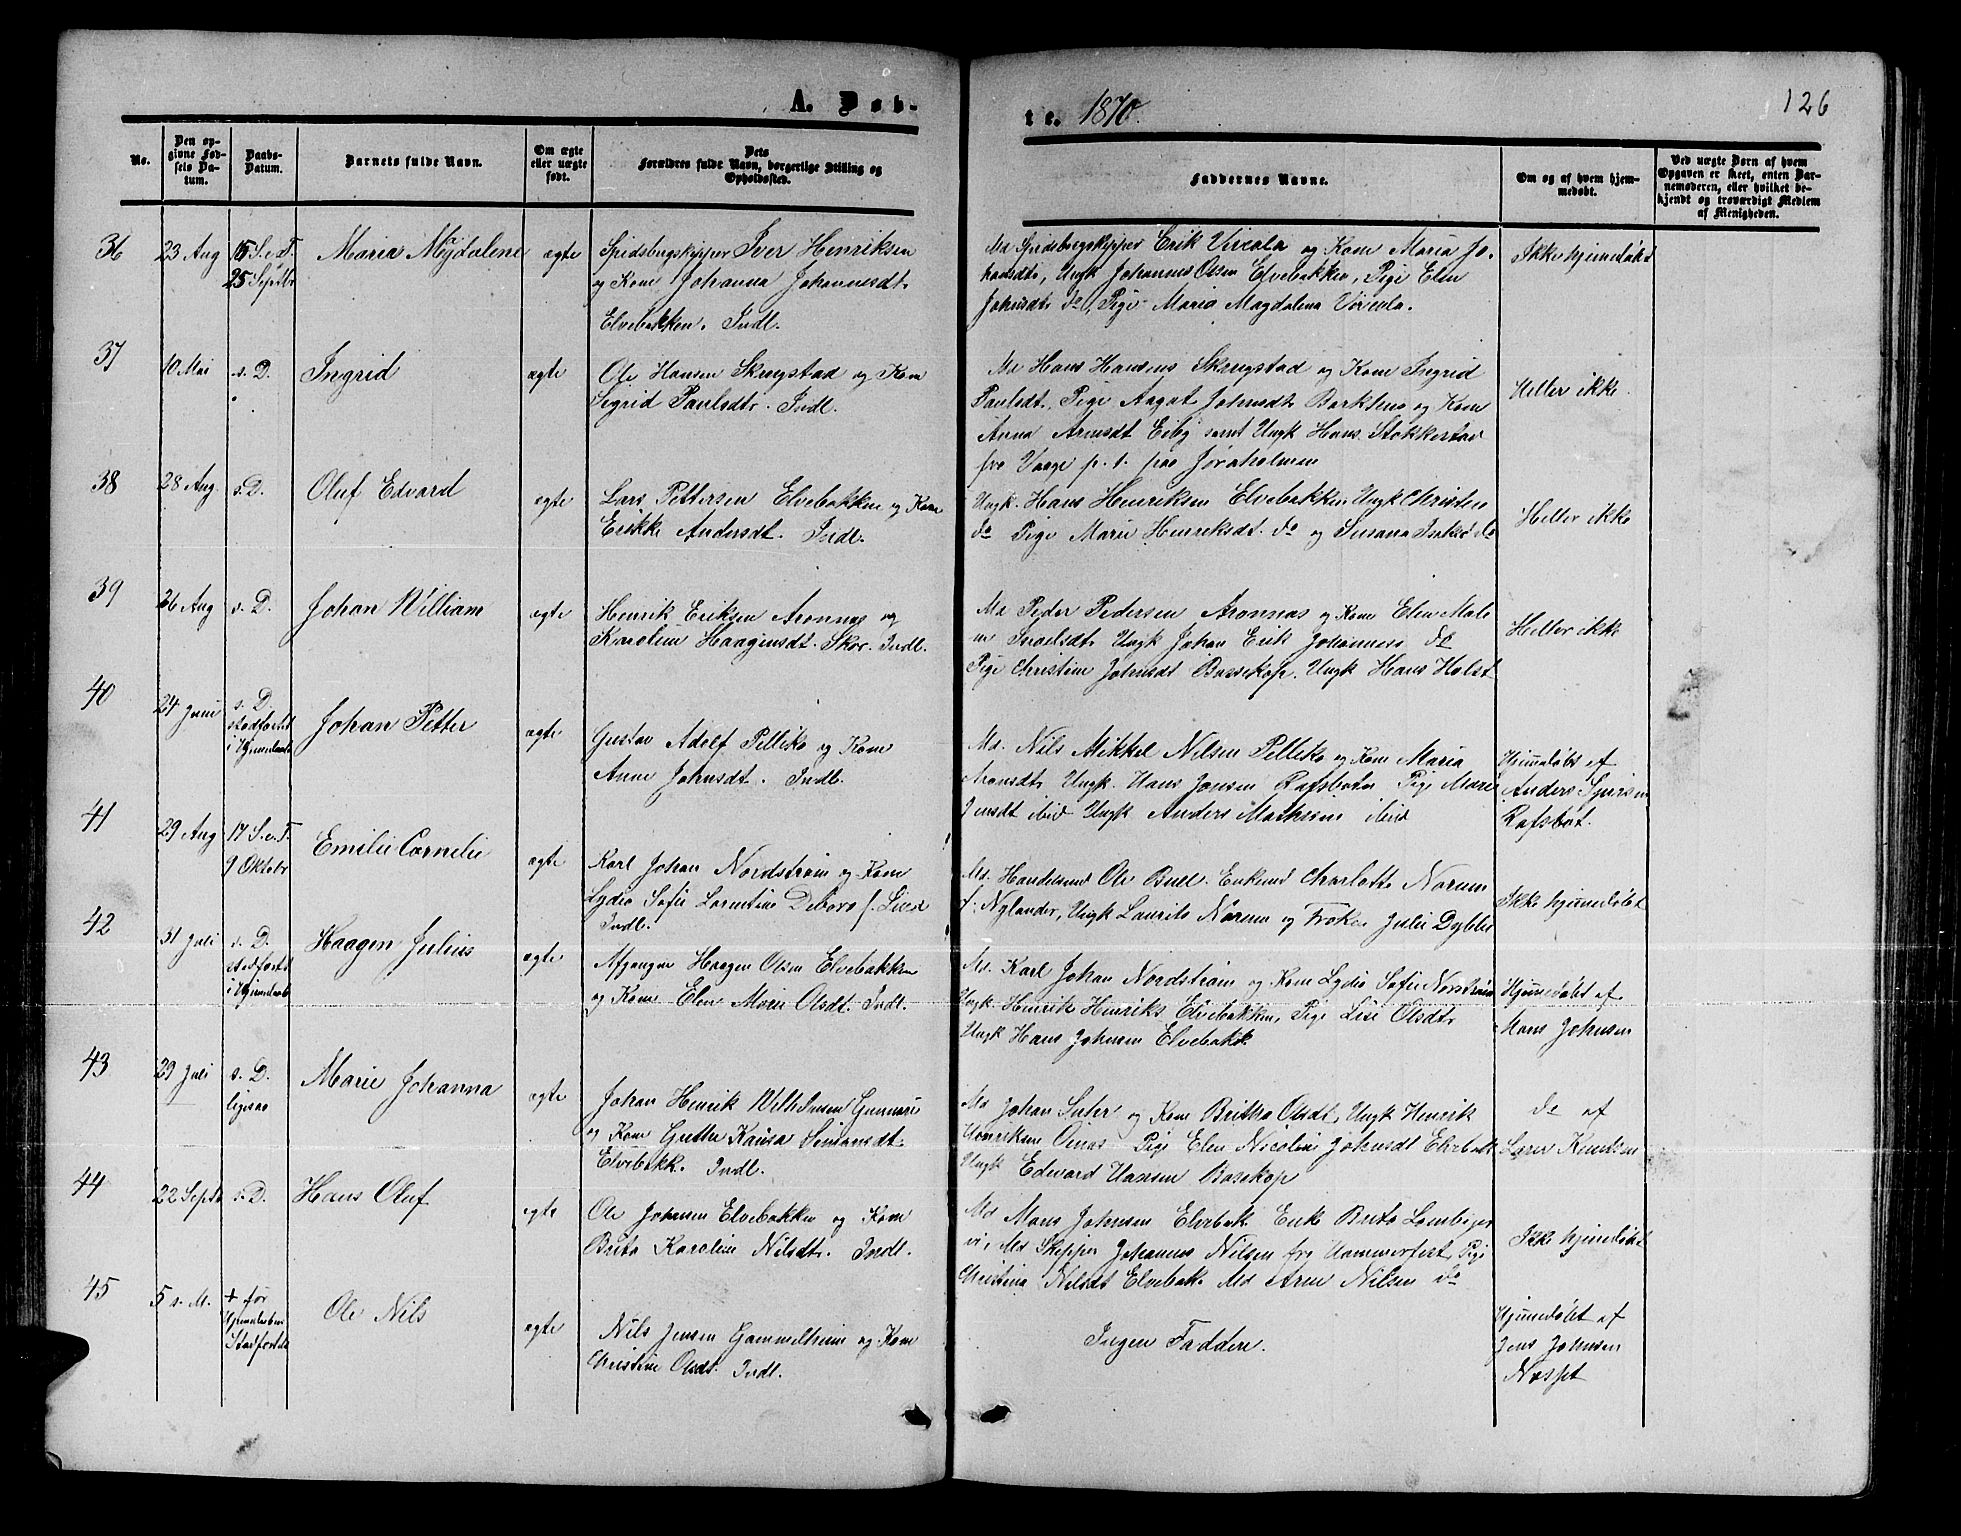 A. Døb-
te. 1870.
126
No.
Den op-
givne Fød-
sels Da-
tum.
Daabs-
Datum.
Barnets fulde Navn.
Om ægte
eller uægte
født.
Dets
Forældres fulde Navn, borgerlige Stilling og
Opholdssted.
Faddernes Navne.
Om og af hvem hjem-
medøbt.
Ved uægte Børn af hvem
Opgaven er skeet, enten Bar-
nemoderen, eller hvilket be-
kjendt og troværdigt Medlem
af Menigheden.
36
23 Aug
15 S. e. T.
25 Septbr
Maria Magdalene
ægte
Spidsbergskipper Iver Henriksen
og Kone Johanna Johannesdt.
Elvebakken. Indl.
Md Spidsbergskipper Erik Vircola og Kone Maria Jo-
hansdt, Ungk Johannes Olsen Elvebakken, Pige Elen
Johnsdt do, Pige Maria Magdalena Vircola.
Ikke hjemedøbt
37
10 Mai
s. D.
Ingrid
ægte
Ole Hansen Skrugstad og Kone
Sigrid Paulsdtr. Indl.
Md Hans Hansens Skrugstad og Kone Ingrid
Paulsdt, Pige Aagot Johnsdt og Kone
Anna Arnesdt Eiby samt Ungk Hans Stokkestad
fra Vaage p. t. paa Jøraholmen
Heller ikke
38
28 Aug.
s. D.
Oluf Edvard
ægte
Lars Pettersen Elvebakken og Kone
Erikke Andersdt. Indl.
Ungk. Hans Henriksen Elvebakken, Ungk Christen
do Pige Marie Henriksdt. do og Susana Isaksd do
Heller ikke
39
26 Aug
s. D.
Johan William
ægte
Henrik Eriksen Aronnas og
Karoline Haagensdt. Skov. Indl.
Md Peder Pedersen Aronnas og Kone Elen Male
ne Israelsdt, Ungk Johan Erik Johannes do
Pige Christine Johnsdt Bossekop, Ungk Hans Holst
Heller ikke
40
24 Juni
s. D.
stadfæstet
i Hjemedaab
Johan Petter
ægte
Gustav Adolf Pelliko og Kone
Anne Johnsdt. Indl.
Md. Nils Mikkel Nilsen Pelliko og Kone Maria
Monsdt, Ungk. Hans Jonsen Rafsbotn Pige Marie
Jensdt ibid Ungk Anders Mathisen ibid
Hjemedøbt af
Anders
Rafsbot.
41
29 Aug
17 S. e. T.
9 Oktobr
Emilie Cornelie
ægte
Karl Johan Nordstrøm og Kone
Lydia Sofie Lorentine Debora f.
Indl.
Md. Handelsmd Ole Bull. Enkemd Charlotte Norum
f: Nylander, Ungk Laurits Norum og Frøken Julie
Ikke hjemedøbt
42
31 Juli
s. D.
stadfæstet
i Hjemedaab
Haagen Julius
ægte
Afgangne Haagen Olsen Elvebakken
og Kone Elen Marie Olsdt. Indl.
Md. Karl Johan Nordstrøm og Kone Lydia Sofie Nordstrøm
Ungk Henrik Henriks Elvebakken, Pige Lise Olsdt,
Ungk Hans Johnsen Elvebakk
Hjemedøbt af
Mons Johnsen
43
29 Juli
s. D.
ligesaa
Marie Johanna
ægte
Johan Henrik Wilhelmsen
og Kone Grethe Kaisa Simonsdt.
Elvebakk. Indl.
Md Johan Suter og Kone Britha Olsdt, Ungk Henrik
Henriksen Oinas Pige Elen Nicoline Johnsdt Elvebak
Ungk Edvard Hansen Bossekop
do af
Lars Knudsen
44
22 Septr
s. D.
Hans Oluf
ægte
Ole Johnsen Elvebakken og Kone
Brita Karoline Nilsdt. Indl.
Md Mons Johnsen Elvebak Enke Brita
Md Skipper Johannes Nilsen fra Hammerfest, Pige
Christina Nilsdt Elvebak. Md Arne Nilsen do
Ikke hjemedøbt
45
5 s. M.
+ før
Hjemedaaben
Stadfæstedes
Ole Nils
ægte
Nils Jensen Gammelheim og Kone
Christine Olsdt. Indl.
Ingen Faddere.
Hjemedøbt af
Jens Johnsen